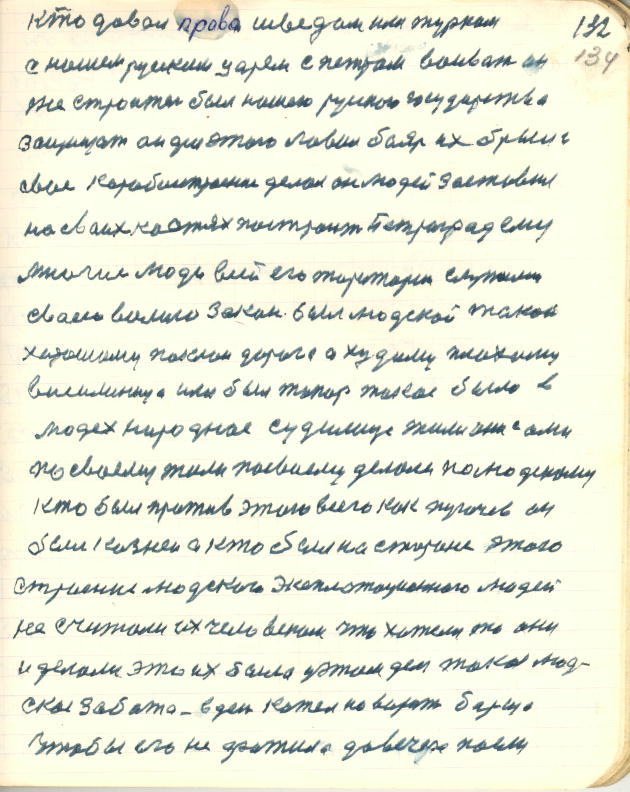 кто давал права шведам или туркам 132
с нашем руским царем с петром воиват он 134
же строител был нашего руского государства
защищат он для этого ловил бояр их брыл и
свое караблестроение делал он людей заставил
на сваих костях построит Петроград ему
многие люди всей его ториторий служили
сваею волию закон был людской такой
хорошому поклон дорога а худому плохому
висилница или был топор такое было в
людех народное судилище жили они сами
по своему жили посваему делали по людскому
кто был против этого всего как пугачев он
был казнен а кто был на стороне этого
строение людского эксплотационного людей
не считали их человеком что хотели то они
и делали это их была в этом деле такая люд-
ское забота – в ден котел наварят борща
чтобы его не хватило довечера поели